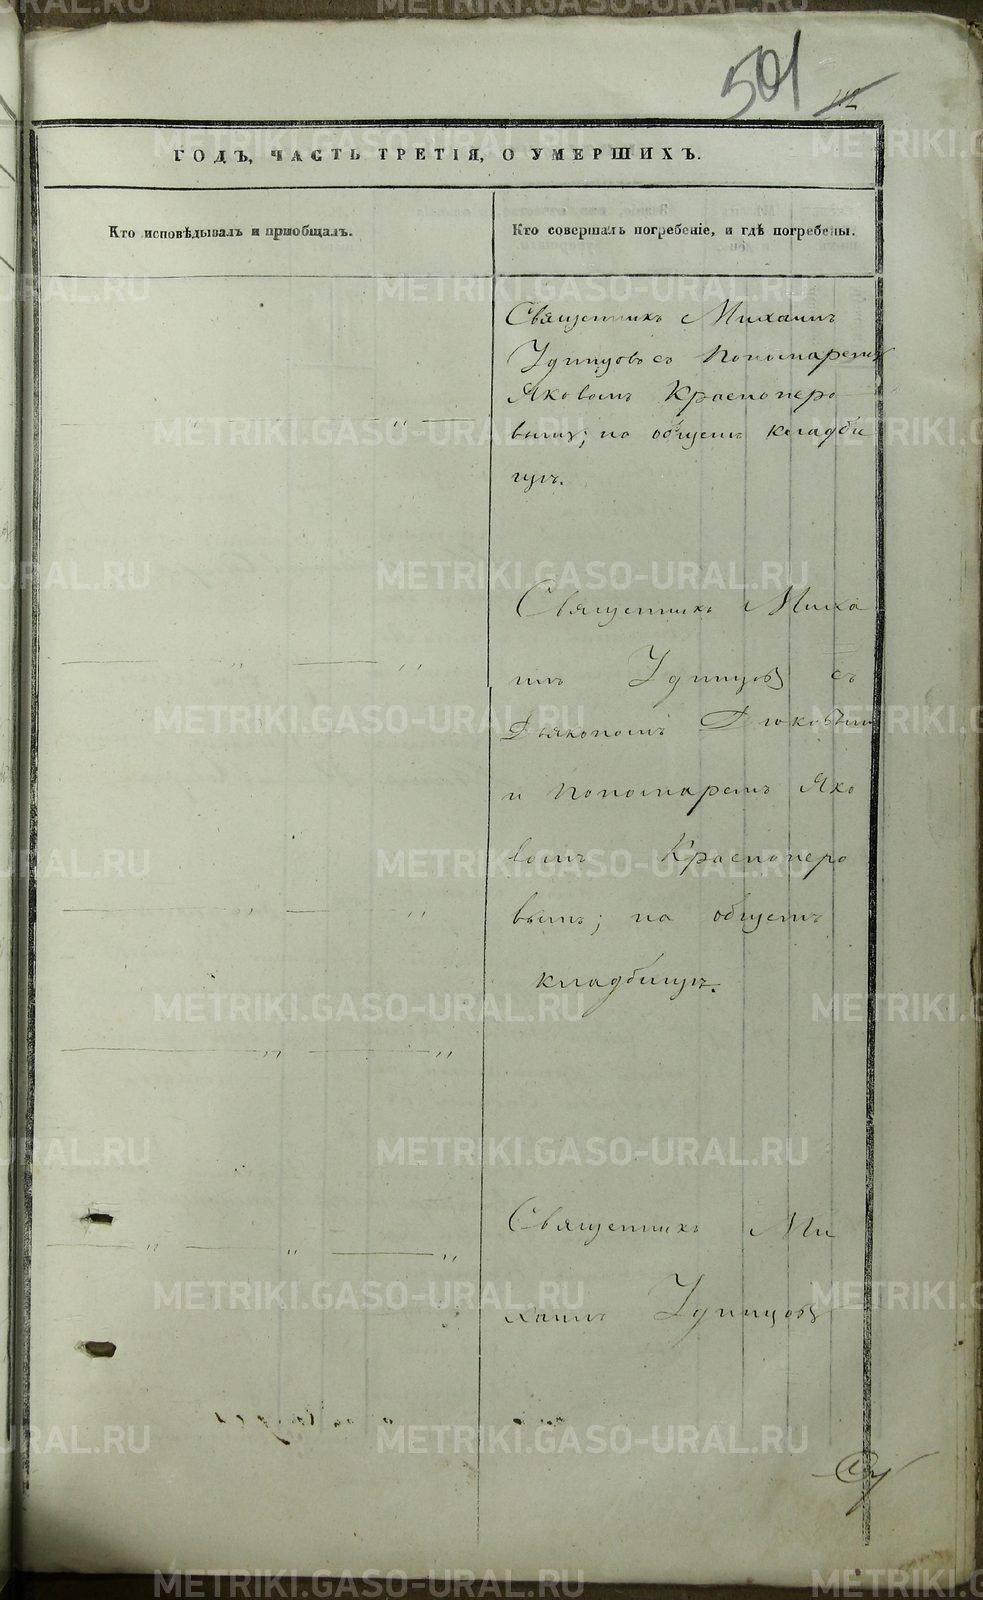 501
112
ГОДЪ, ЧАСТЬ ТРЕТІЯ, О УМЕРШИХЪ.
Кто исповѣдывалъ и пріобщалъ.
Кто совершалъ погребеніе, и гдѣ погребены.
Священникъ Михаилъ
Удинцовъ съ Пономаремъ
Яковомъ Красноперо
вымъ; на общемъ кладби
щѣ.
Священникъ Миха
илъ Удинцовъ съ
Дьякономъ
и Пономаремъ Яко
вомъ Красноперо
вымъ; на общемъ
кладбищѣ.
Священникъ Ми
хаилъ Удинцовъ
METRIKI.GASO-URAL.RU